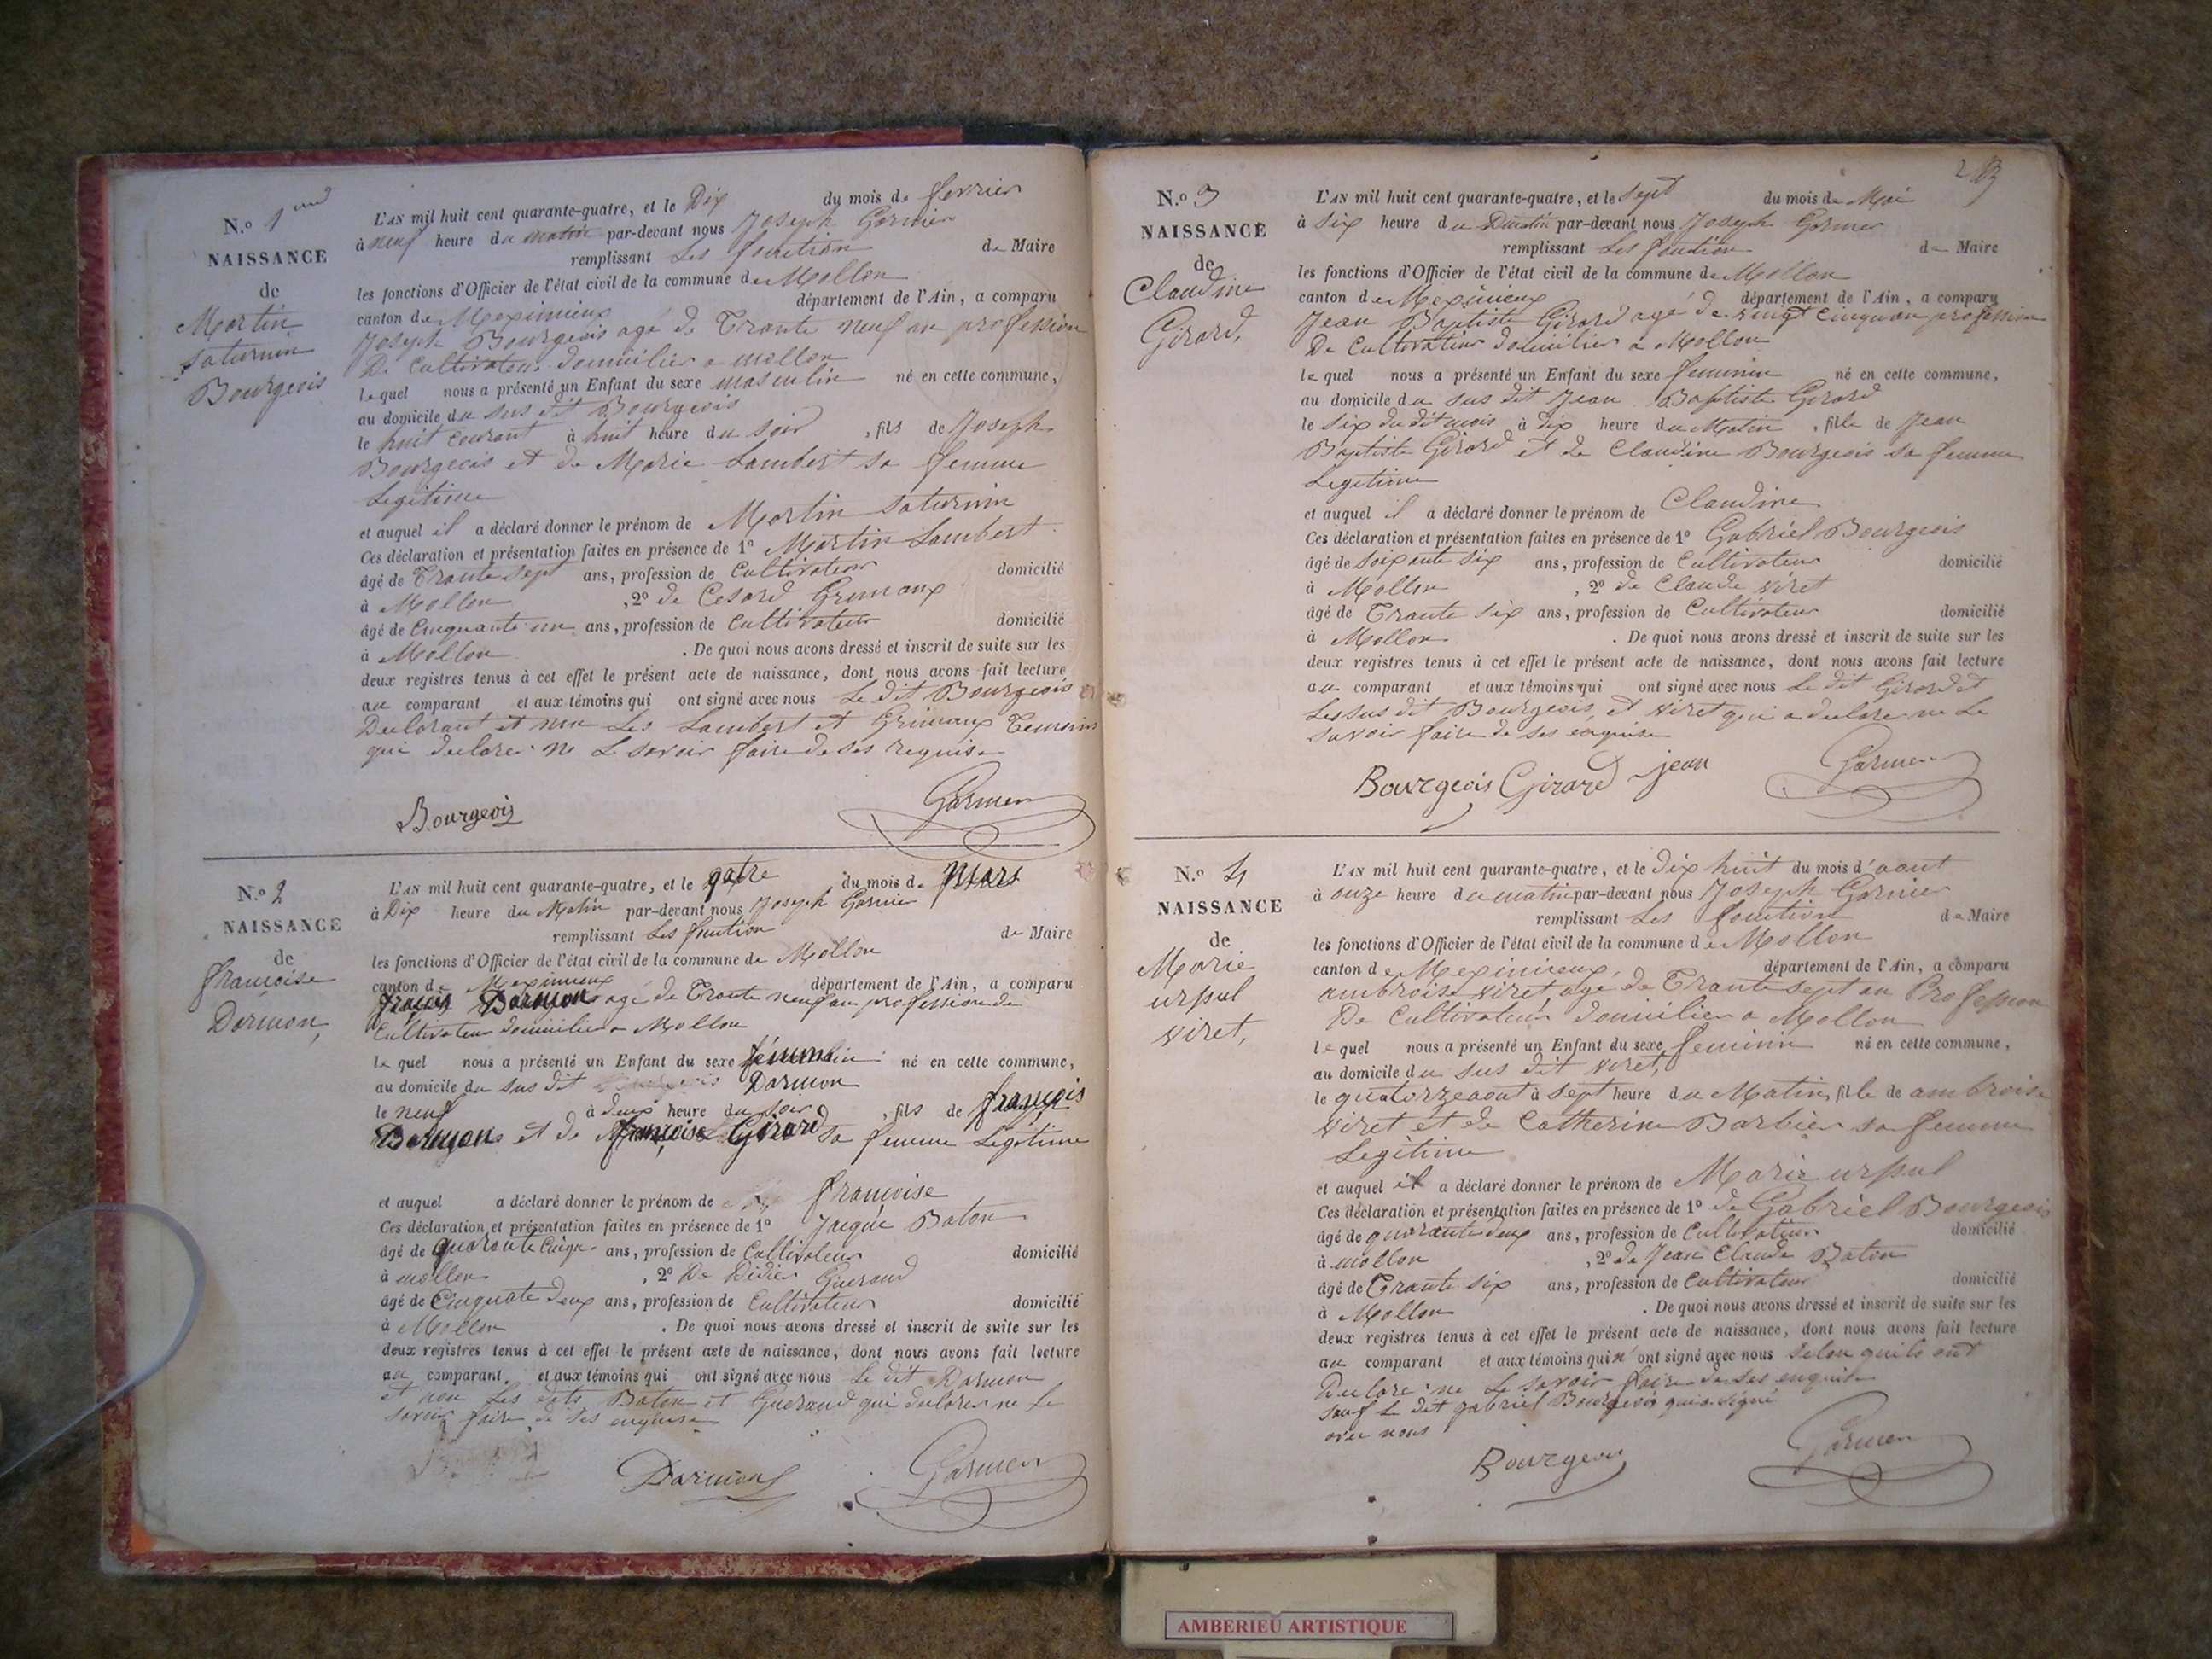 N.o 1
NAISSANCE
de
Martin
saturnin
Bourgeois
L'AN mil huit cent quarante-quatre, et le Dix du mois de fevrier
à neuf heure du matin par-devant nous Joseph Garnier
remplissant Les fonction de Maire
les fonctions d'Officier de l'état civil de la commune de Mollon
canton de Meximieux département de l'Ain, a comparu
Joseph Bourgeois agé de Trante neuf an profession
De Cultivateur domicilier a mollon
lequel nous a présenté un Enfant du sexe masculin né en cette commune,
au domicile du sus dit Bourgeois
le huit Courant à huit heure du soir, fils de Joseph
Bourgeois et de Marie Lambert sa femme
Legitime
et auquel il a déclaré donner le prénom de Martin saturnin
Ces déclaration et présentation faites en présence de 1º Martin Lambert
âgé de Trante sept ans, profession de Cultivateur domicilié
à Mollon, 2º de Cesard Grimaux
âgé de Cinquante un ans, profession de Cultivateur domicilié
à Mollon. De quoi nous avons dressé et inscrit de suite sur les
deux registres tenus à cet effet le présent acte de naissance, dont nous avons fait lecture
au comparant et aux témoins qui ont signé avec nous Le dit Bourgeois
Declarant et non Les Lambert et Grimaux Temoins
qui declare ne Le savoir faire de ses requise
Bourgeois Garnier
N.o 2
NAISSANCE
de
francoise
Darmon,
L'AN mil huit cent quarante-quatre, et le qatre du mois de Mars
à Dix heure du Matin par-devant nous Joseph Garnier
remplissant Les fonction de Maire
les fonctions d'Officier de l'état civil de la commune de Mollon
canton de Meximieux département de l'Ain, a comparu
françois Darmon agé de Trante neuf an profession de
Cultivateur domicilier a Mollon
lequel nous a présenté un Enfant du sexe féminin né en cette commune,
au domicile du sus dit Darmon
le neuf à deux heure du soir, fils de françois
Darmon et de françoise Girard sa femme Legitime
et auquel a déclaré donner le prénom de francoise
Ces déclaration et présentation faites en présence de 1º Jacque Baton
âgé de quarante Cinq ans, profession de Cultivateur domicilié
à mollon, 2º De Didier Gueraud
âgé de Cinquate deux ans, profession de Cultivateur domicilié
à Mollon. De quoi nous avons dressé et inscrit de suite sur les
deux registres tenus à cet effet le présent acte de naissance, dont nous avons fait lecture
au comparant et aux témoins qui ont signé avec nous Le dit Darmon
et non Les dits Baton et Gueraud qui declarer ne Le
savoir faire de ses enquise
Darmon Garnier
N.o 3
NAISSANCE
de
Claudine
Girard,
L'AN mil huit cent quarante-quatre, et le sept du mois de Mai
à six heure du Dmatin par-devant nous Joseph Garnier
remplissant Les fonction de Maire
les fonctions d'Officier de l'état civil de la commune de Mollon
canton de Meximieux département de l'Ain, a comparu
Jean Baptiste Girard agé de vingt cinq an profession
De Cultivateur domicilier a Mollon
lequel nous a présenté un Enfant du sexe feminin né en cette commune,
au domicile du sus dit Jean Baptiste Girard
le six du dit mois à dix heure du Matin, fille de Jean
Baptiste Girard et de Claudine Bourgeois sa femme
Legitime
et auquel il a déclaré donner le prénom de Claudine
Ces déclaration et présentation faites en présence de 1º Gabriel Bourgeois
âgé de soixante six ans, profession de Cultivateur domicilié
à Mollon, 2º de Claude Viret
âgé de Trante six ans, profession de Cultivateur domicilié
à Mollon. De quoi nous avons dressé et inscrit de suite sur les
deux registres tenus à cet effet le présent acte de naissance, dont nous avons fait lecture
au comparant et aux témoins qui ont signé avec nous Le dit Girard et
Le sus dit Bourgeois, et Viret qui a declare ne Le
savoir faire de ses enquise
Bourgeois Girard jean Garnier
N.o 4
NAISSANCE
de
Marie
urpul
Viret,
L'AN mil huit cent quarante-quatre, et le Dix huit du mois d'aout
à onze heure du matin par-devant nous Joseph Garnier
remplissant Les fonction de Maire
les fonctions d'Officier de l'état civil de la commune de Mollon
canton de Meximieux, département de l'Ain, a comparu
ambroise Viret agé de Trante sept an Profession
De Cultivateur domicilier a Mollon
lequel nous a présenté un Enfant du sexe feminin né en cette commune,
au domicile du sus dit Viret,
le quatorze aout à sept heure du Matin, fille de ambroise
Viret et de Catherine Barbier sa femme
Legitime
et auquel il a déclaré donner le prénom de Marie urpul
Ces déclaration et présentation faites en présence de 1º de Gabriel Bourgeois
âgé de quarante deux ans, profession de Cultivateur domicilié
à mollon, 2º de Jean Claude Baton
âgé de Trante six ans, profession de Cultivateur domicilié
à Mollon. De quoi nous avons dressé et inscrit de suite sur les
deux registres tenus à cet effet le présent acte de naissance, dont nous avons fait lecture
au comparant et aux témoins qui n'ont signé avec nous selon quils ont
Declare ne Le savoir faire de ses enquise
sauf Le dit gabriel Bourgeois qui a signé
avec nous
Bourgeois Garnier
AMBERIEU ARTISTIQUE